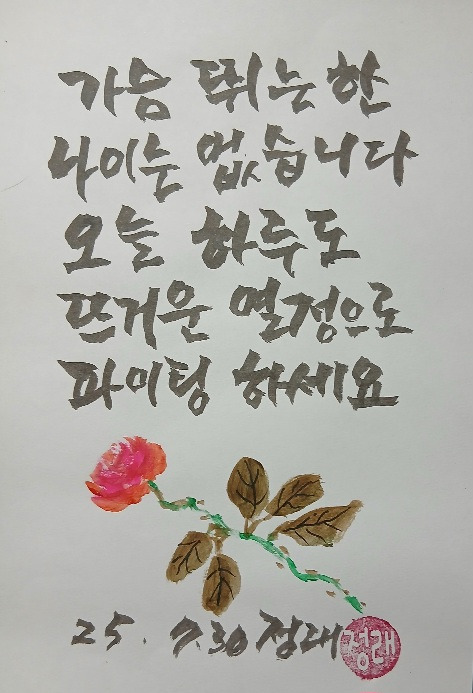 가슴 뛰는 한
나이는 없습니다
오늘 하루도
뜨거운 열정으로
파이팅 하세요
25. 7.30 정래
정래